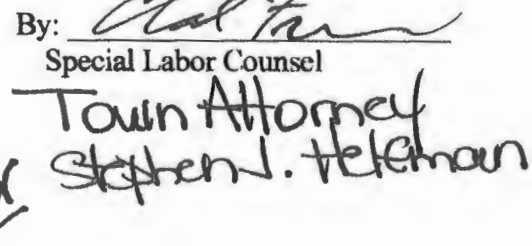 By:
Special Labor Counsel
Town Attorney
Stephen J.